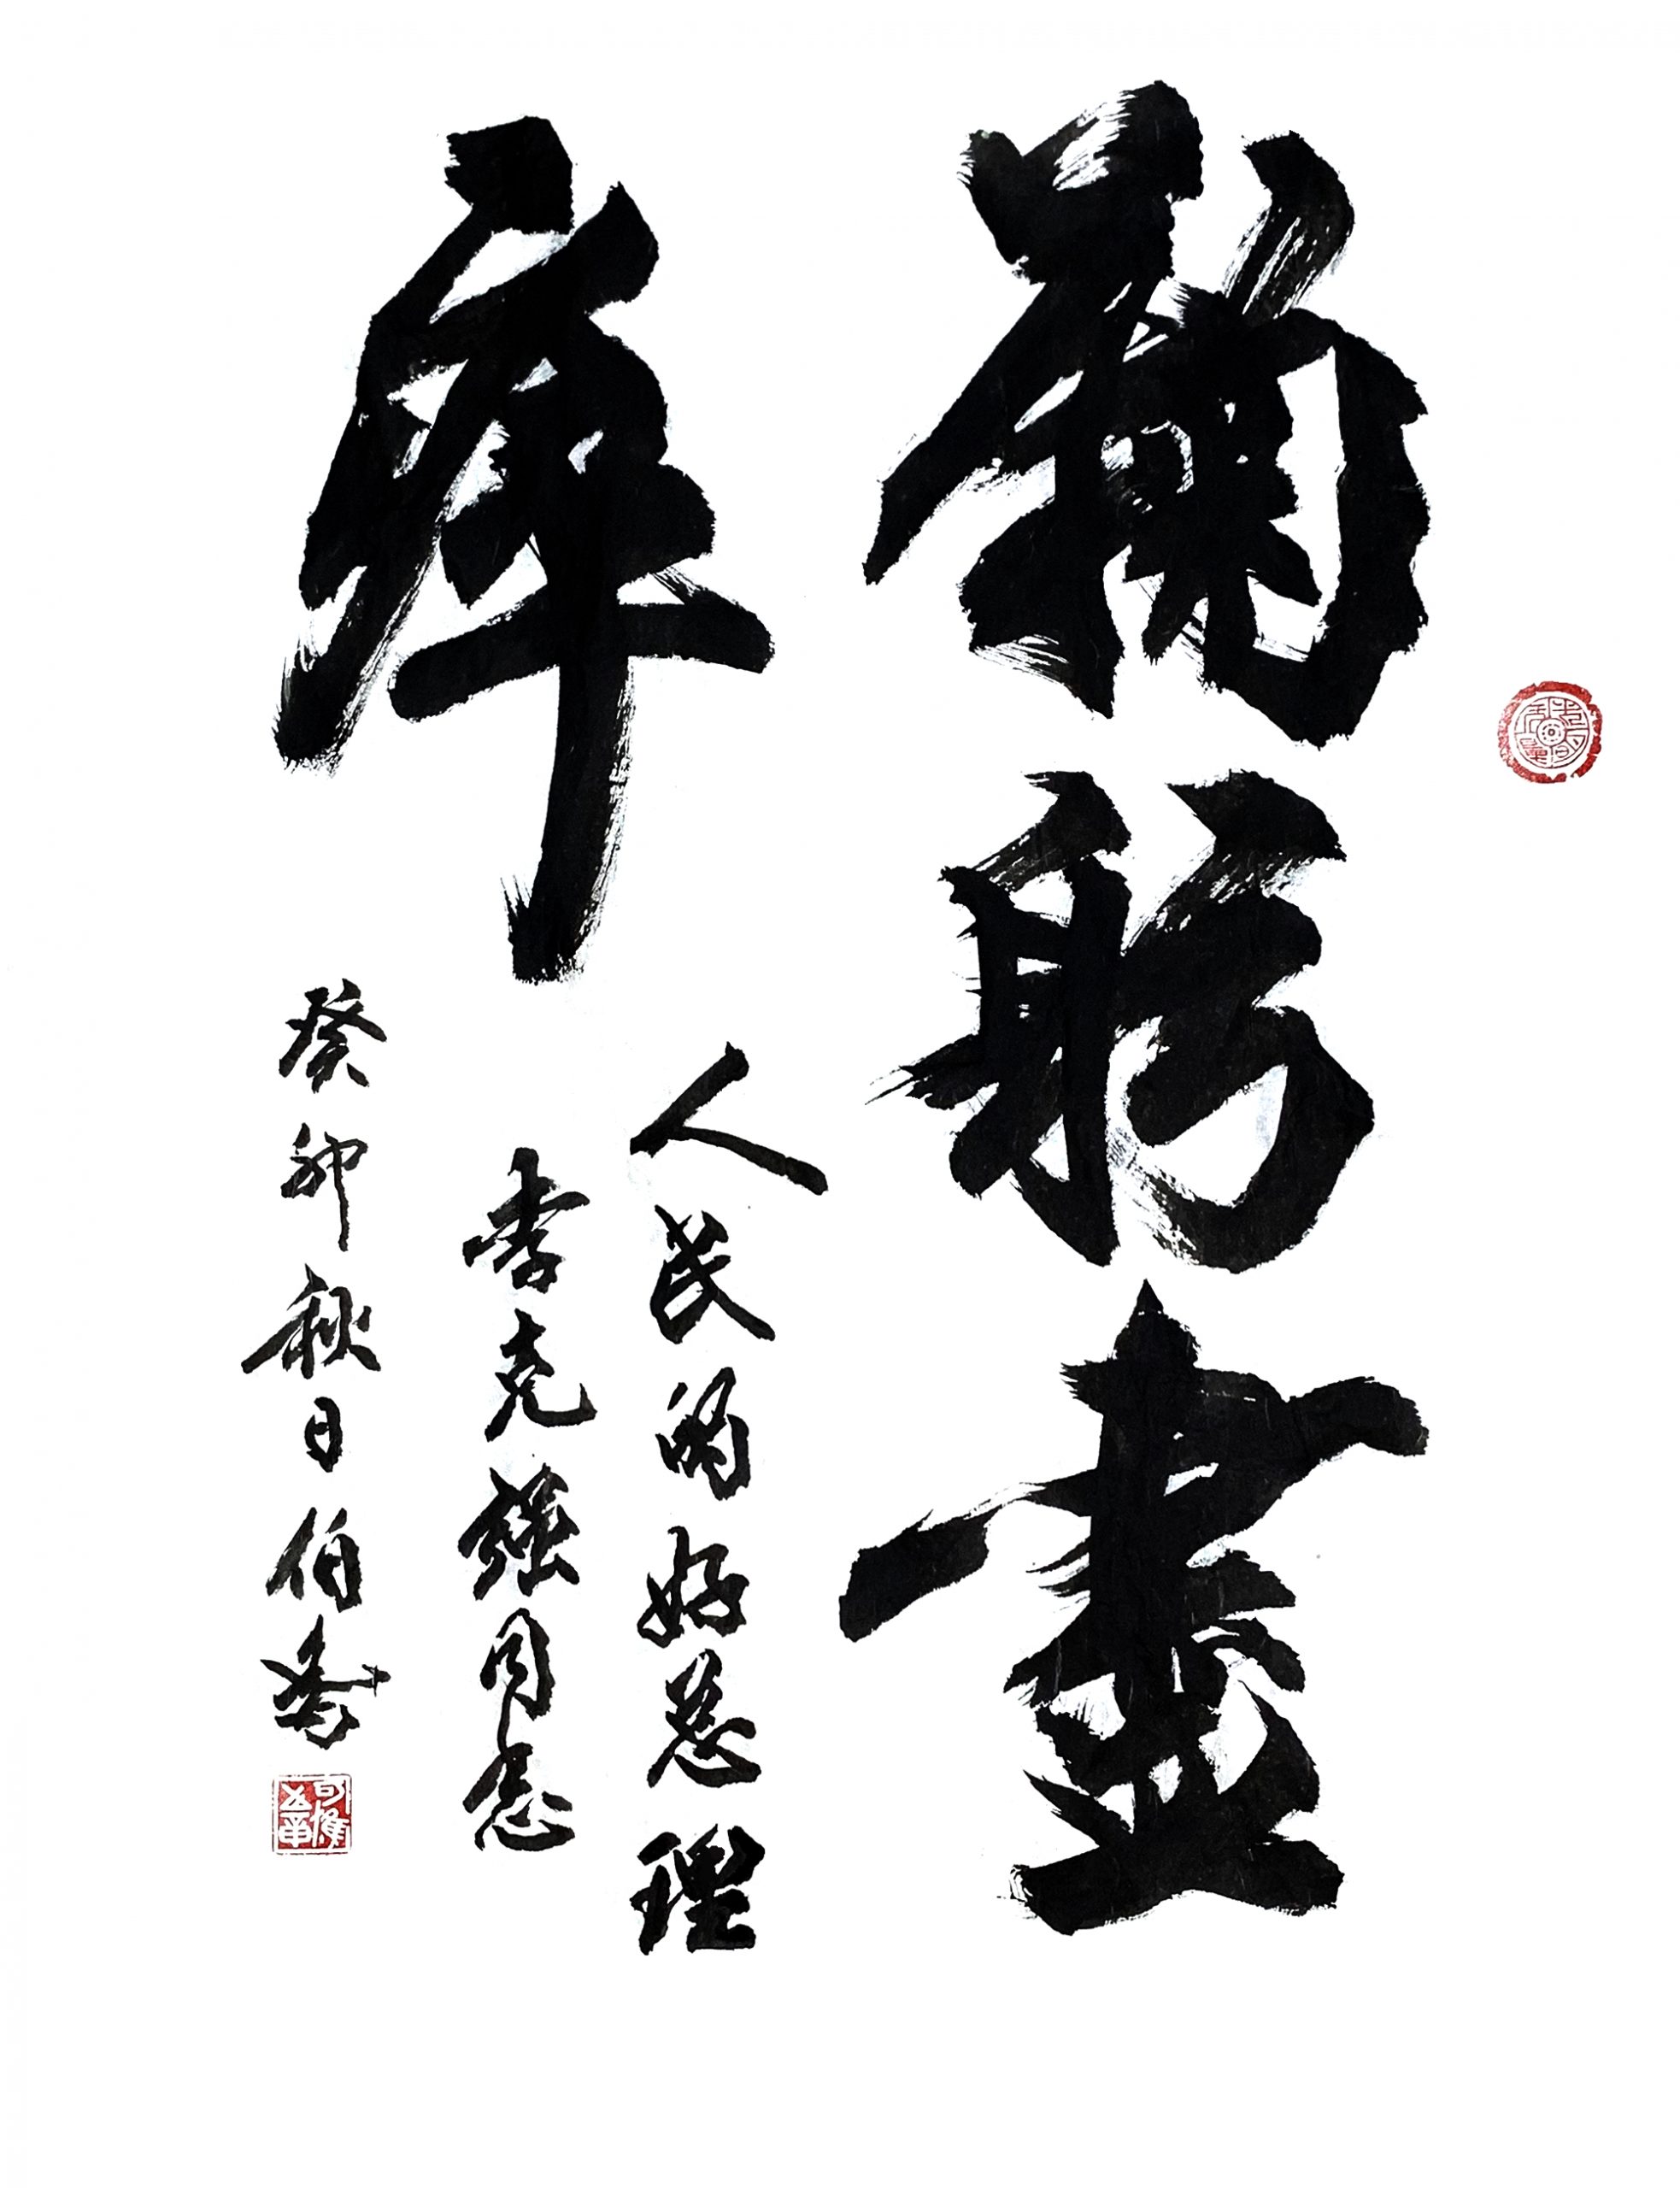 鞠躬盡
瘁
人民的好总理
李克强同志
癸卯秋日伯